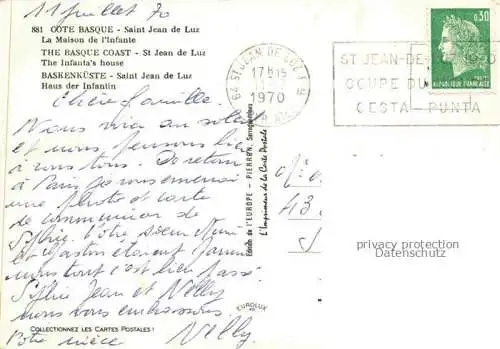 11 juillet 70
881 COTE BASQUE - Saint Jean de Luz
La Maison de l'Infante
THE BASQUE COAST - St Jean de Luz
The Infanta's house
BASKENKÜSTE - Saint Jean de Luz
Haus der Infantin
Chère famille.
Nous voici au soleil
et nous pensons bien
à vous tous. De retour
à Paris je vous enverrai
une photo et carte
de communion de
Sylvie. Votre soeur
et Gaston étaient parmi
nous tout c'est bien passé.
Sylvie Jean et Nelly
vous embrassons.
Votre nièce Nelly
COLLECTIONNEZ LES CARTES POSTALES !
EUROLUX
Editions de l'EUROPE - PIERRON, Sarreguemines
L'Imprimeur de la Carte Postale
64 ST JEAN DE LUZ
17H15
1970
ST JEAN-DE-
COUPE DU
CESTA - PUNTA
0,30
REPUBLIQUE FRANÇAISE
43
privacy protection
Datenschutz